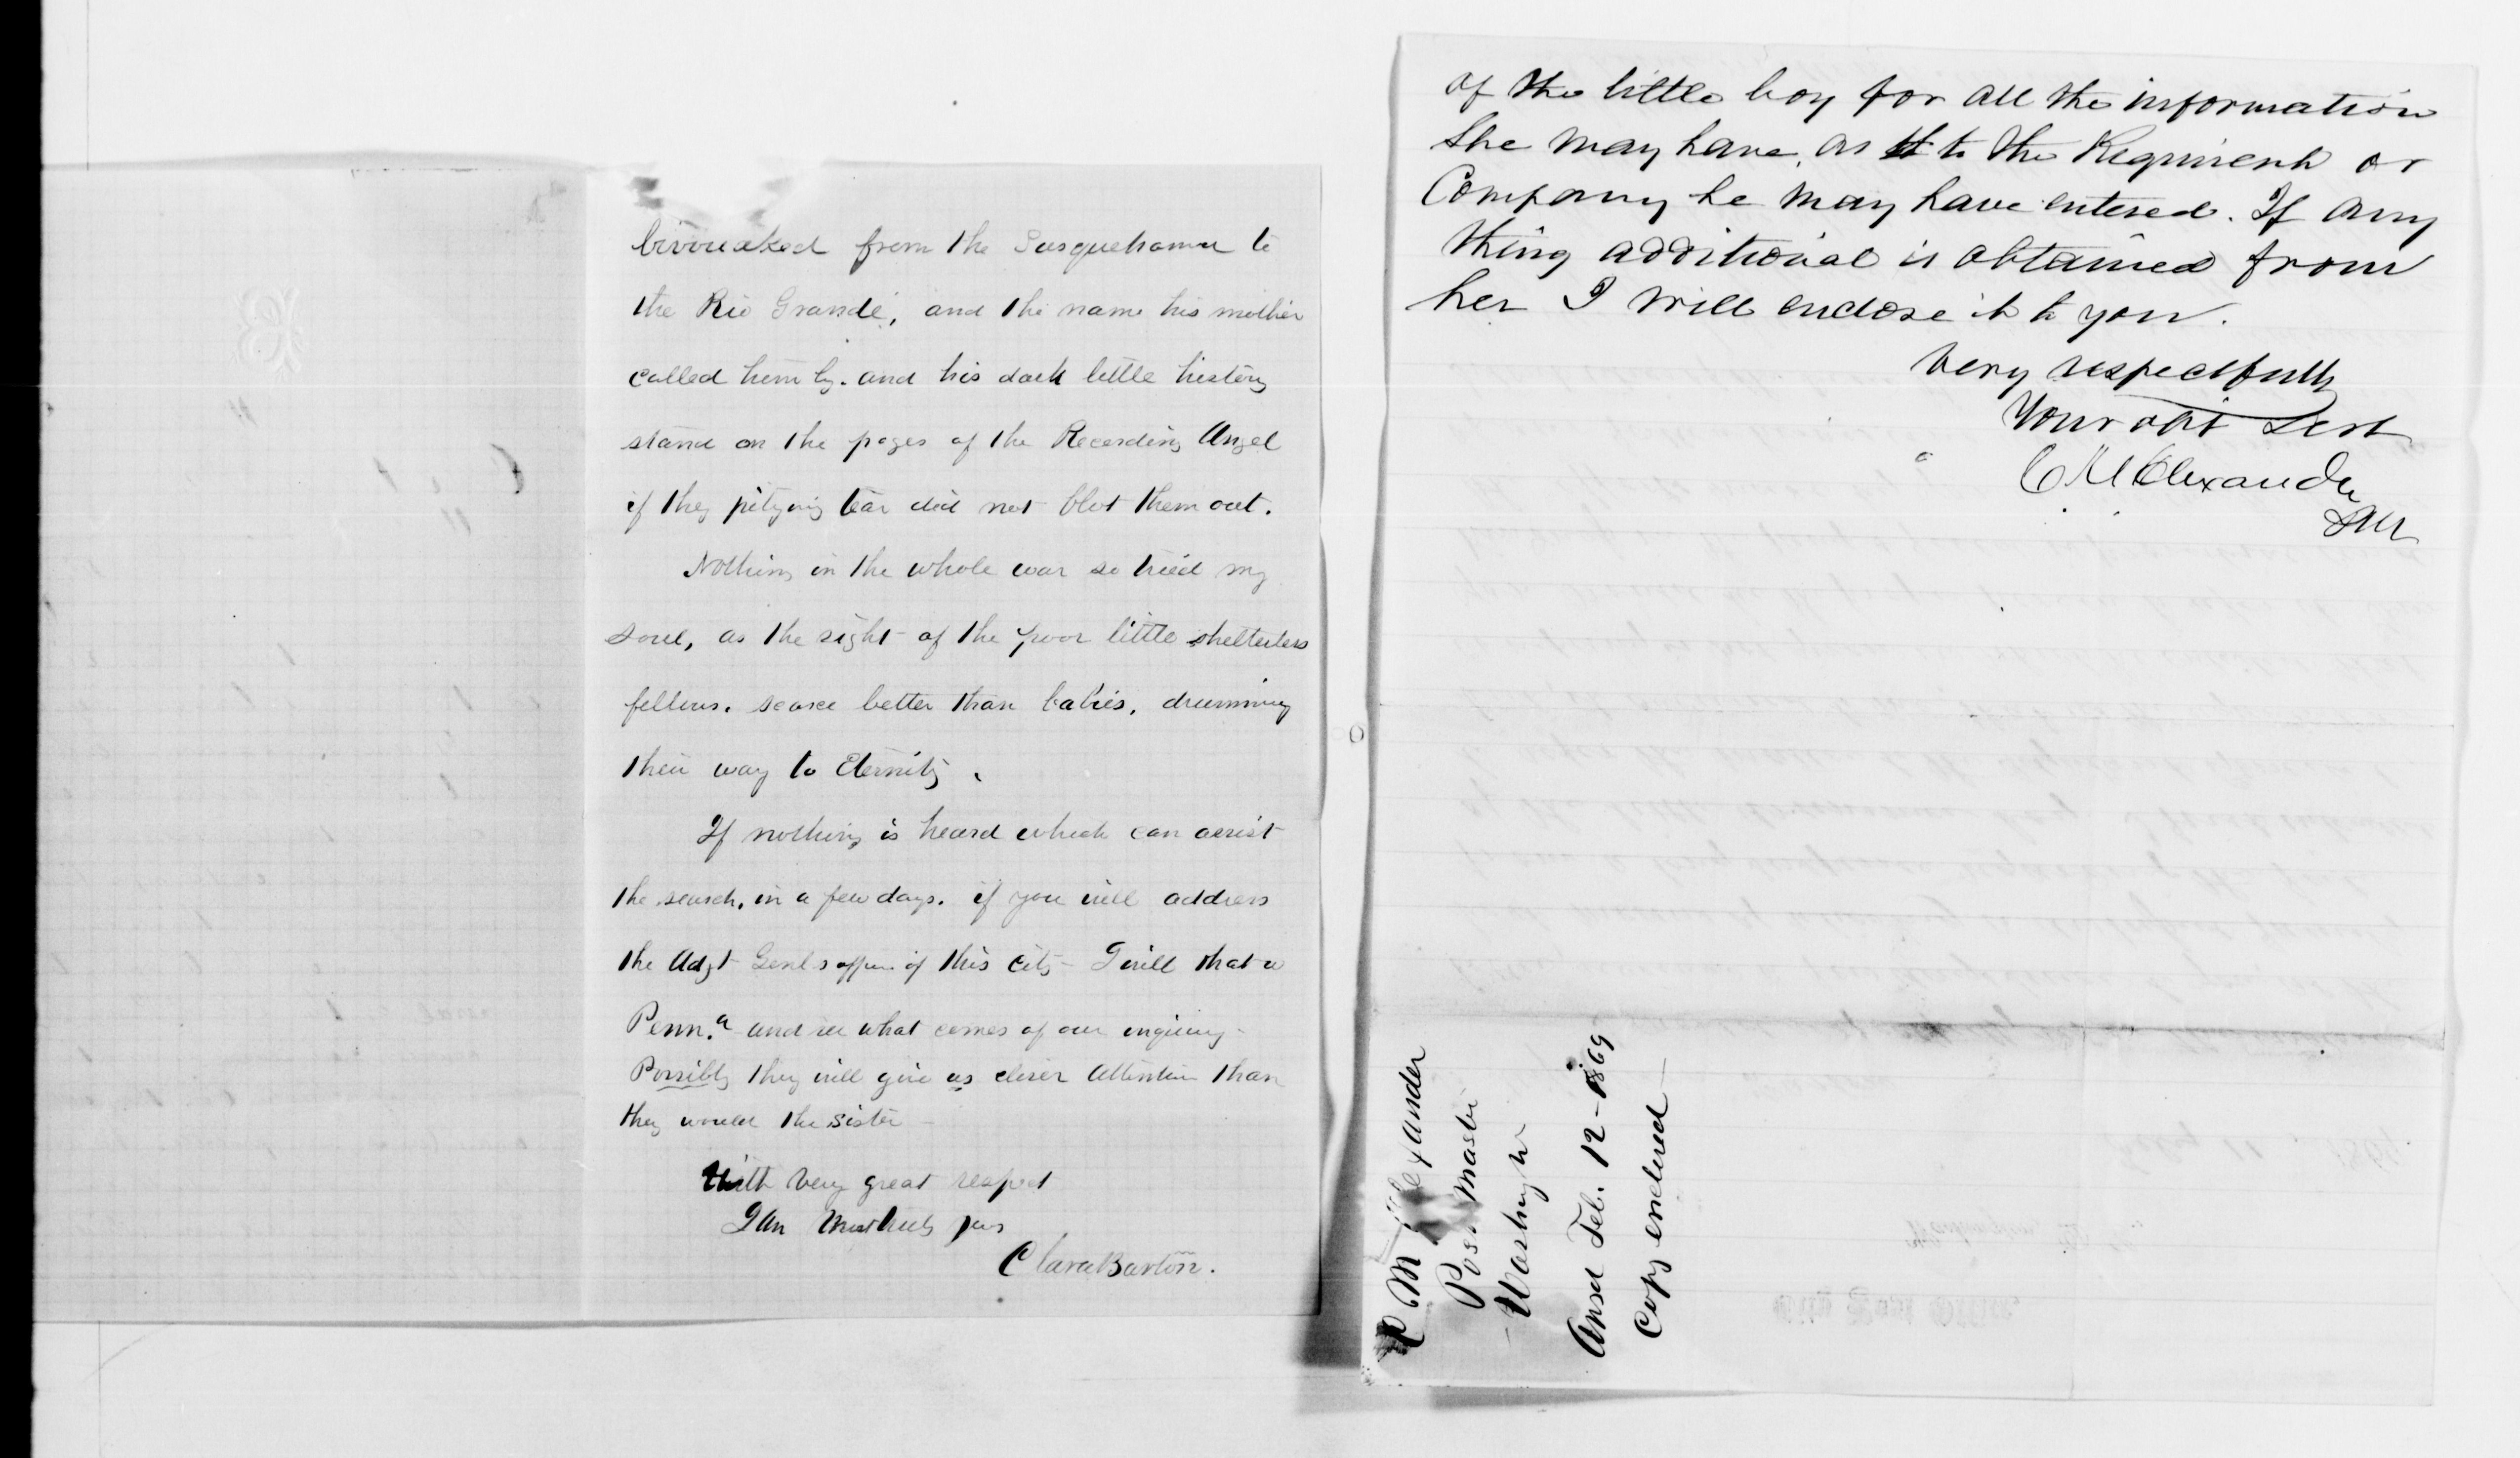 bivouaked from the Susquehanna to
the Rio Grande, and the name his mother
called him by. and his dark little history
stand on the pages of the Recording Angel
if they pitying tear did not blot them out.
Nothing in the whole war so tried my
soul, as the sight of the poor little shelterless
fellows. scarce better than babies, drumming
their way to Eternity.
If nothing is heard which can assist
the search, in a few days. if you will address
the Adjt Genls office of this City - I will that of
Penn.a and see what comes of our inquiry -
Possibly they will give us closer attention than
they would the sister -
With very great respect
I am most truly yours
Clara Barton.
of the little boy for all the information
She may have, as to the Regiment or
Company he may have entered. If any
thing additional is obtained from
her I will enclose it to you.
Very respectfully
Your obt Servt
C M Alexander
PM
C M Alexander
Post Master
Washington
Ansd Feb. 12 - 1869
Copy enclosed -